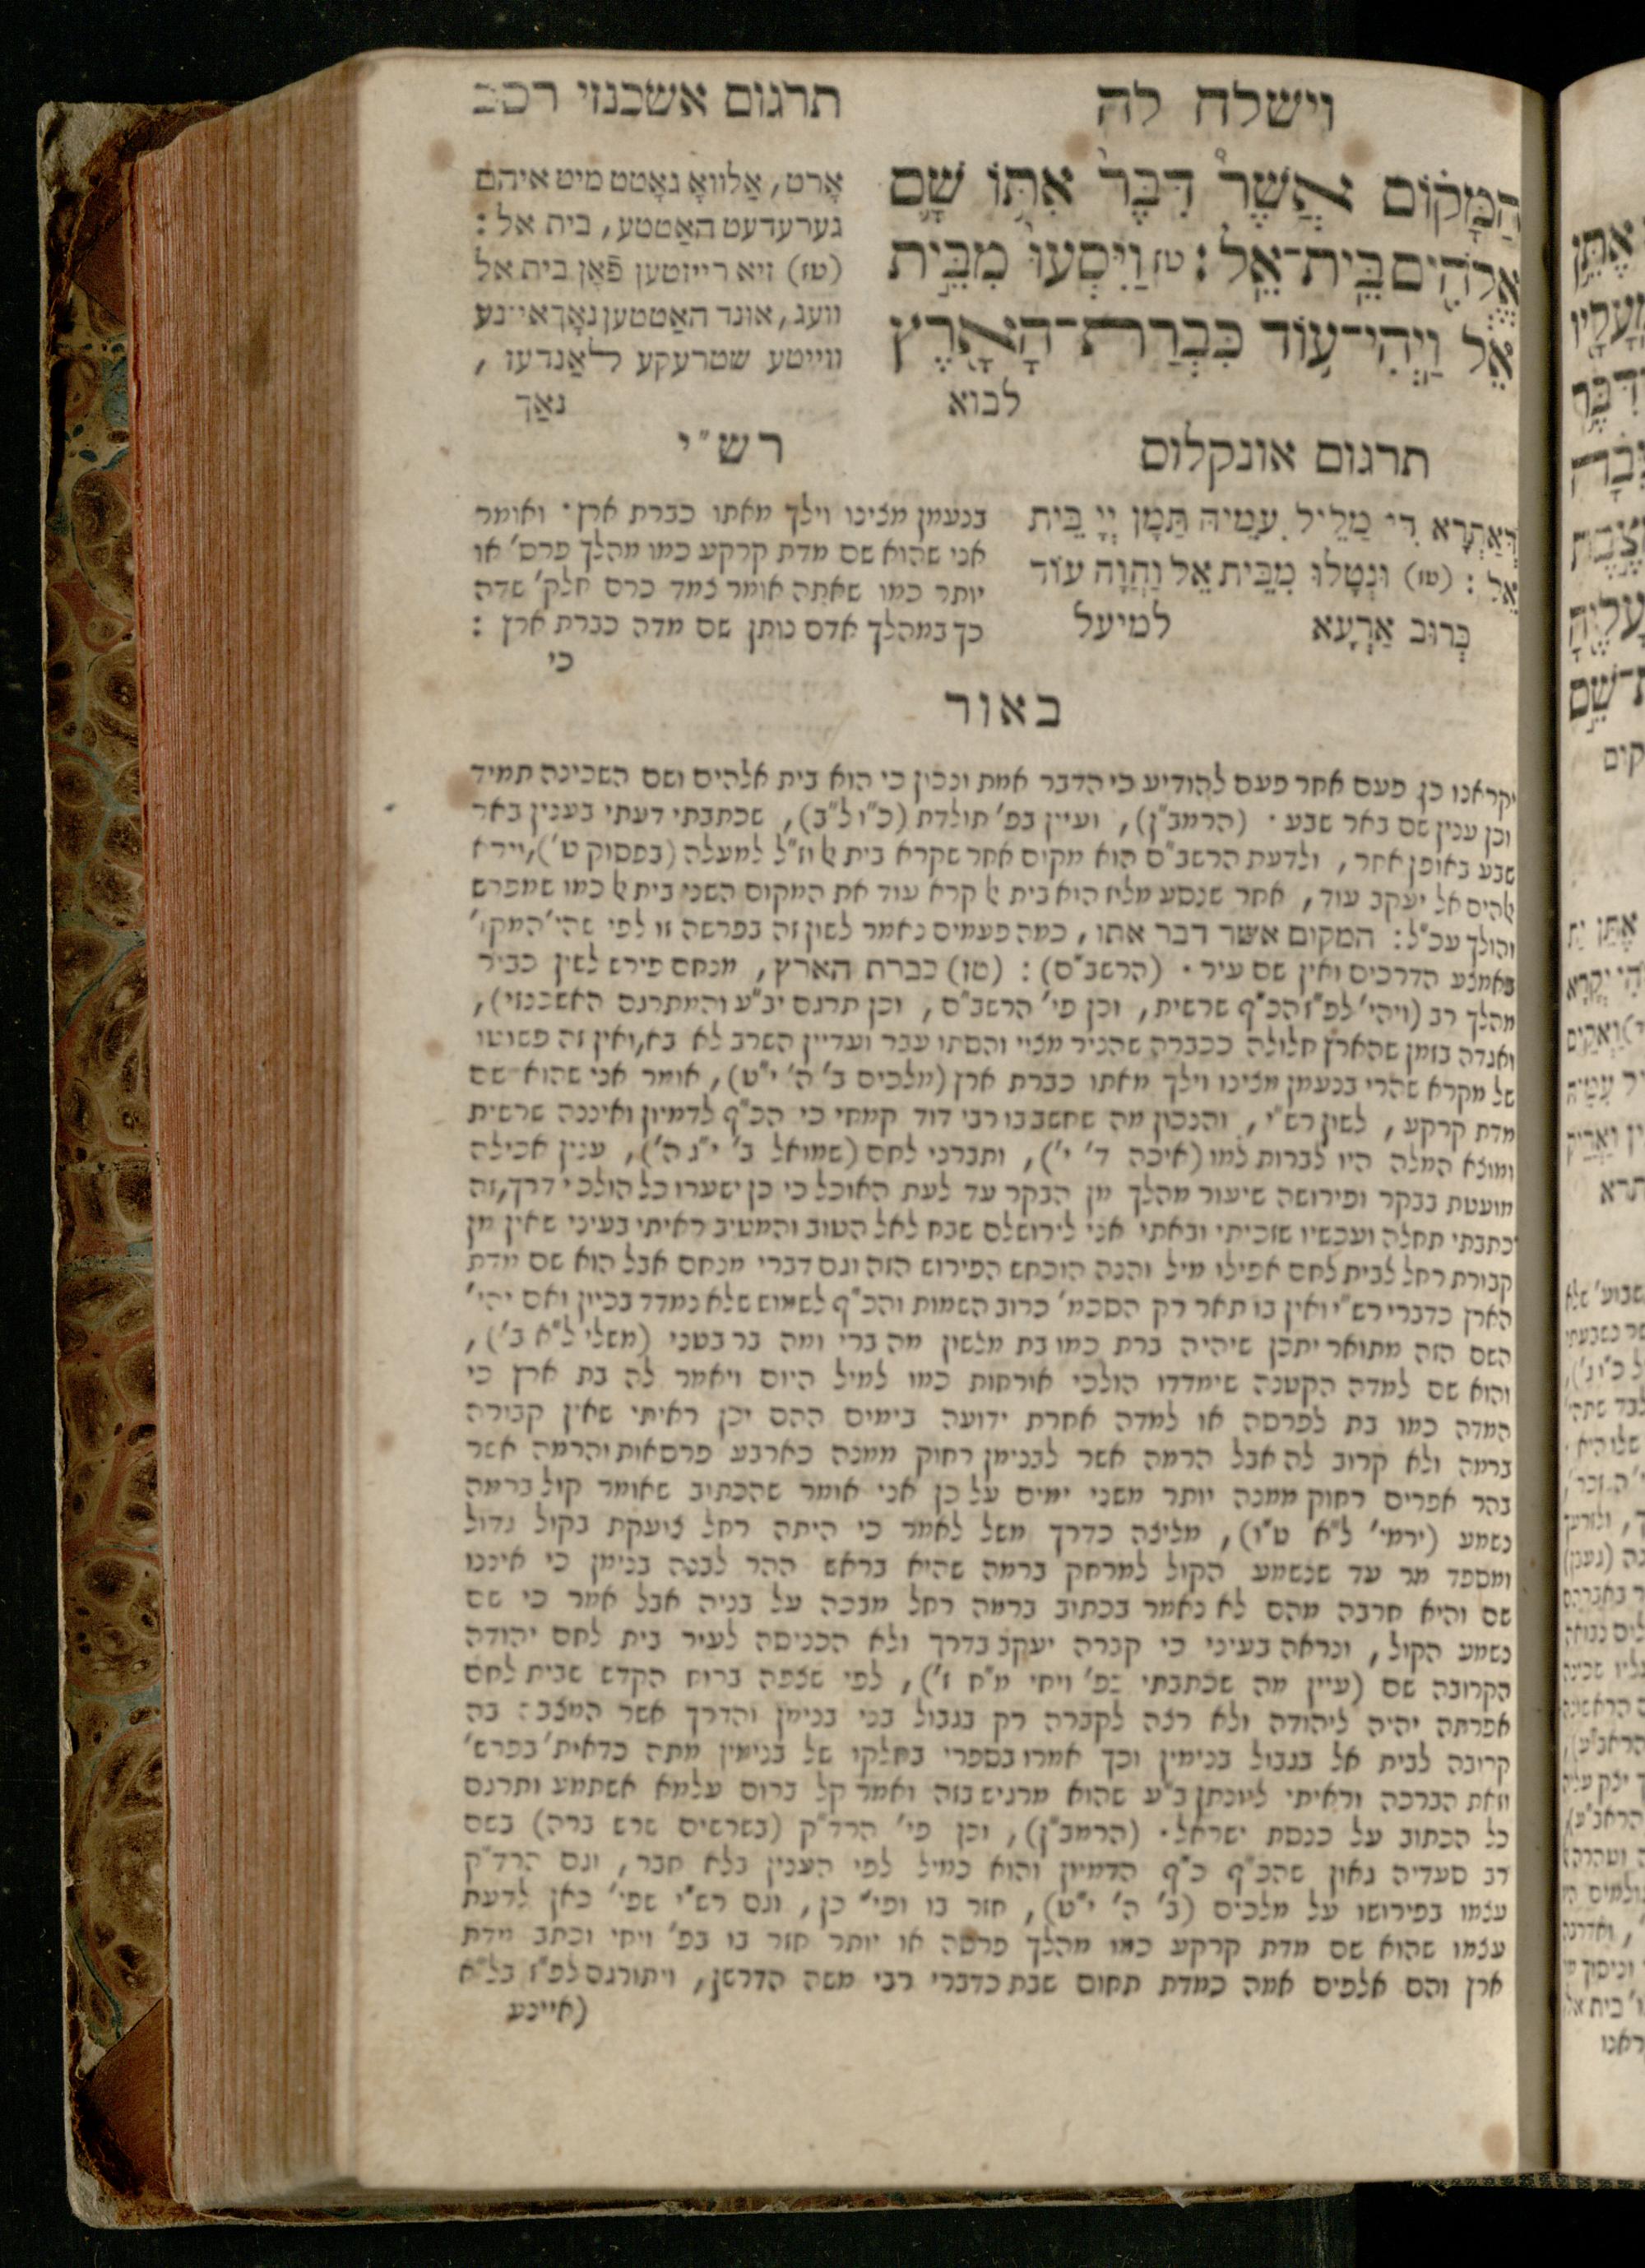 וישלח לה
תרגום אשכנזי רכב
הַמָּקוֹם אֲשֶׁר דִּבֶּר אִתּוֹ שָׁם
אֱלֹהִים בֵּית־אֵל : טז וַיִּסְעוּ מִבֵּית
אֵל וַיְהִי־עוֹד כִּבְרַת־הָאָרֶץ
לבוא
אָרט, אַלוואָ גאָטט מיט איהם
גערעדעט האַטטע, בית אל :
(טז) זיא רייזטען פֿאָן בית אל
וועג, אונד האַטטען נאָך איינע
ווייטע שטרעקע לאַנדעז ,
נאַך
תרגום אונקלוס
דְּאַתְרָא דִּי מַלֵּיל עִמֵּיהּ תַּמָּן יְיָ בֵּית
אֵל : (טז) וּנְטָלוּ מִבֵּית אֵל וַהֲוָה עוֹד
כְּרוּב אַרְעָא למיעל
רש״י
בנעמן מצינו וילך מאתו כברת ארץ · ואומר
אני שהוא שם מדת קרקע כמו מהלך פרס׳ או
יותר כמו שאתה אומר צמד כרם חלק׳ שדה
כך במהלך אדם נותן שם מדה כברת ארץ :
כי
באור
יקראנו כן פעם אחר פעם להודיע כי הדבר אמת ונכון כי הוא בית אלהים ושם השכינה תמיד
וכן ענין שם באר שבע · (הרמב״ן), ועיין בפ׳ תולדת (כ״ו ל״ב), שכתבתי דעתי בענין באר
שבע באופן אחר, ולדעת הרשב״ם הוא מקום אחר שקרא בית אל וז״ל למעלה (בפסוק ט׳), וירא
אלהים אל יעקב עוד, אחר שנסע מלוז הוא בית אל קרא עוד את המקום השני בית אל כמו שמפרש
והולך עכ״ל : המקום אשר דבר אתו, כמה פעמים נאמר לשון זה בפרשה זו לפי שהי׳ המקו׳
באמצע הדרכים ואין שם עיר · (הרשב״ם) : (טז) כברת הארץ, מנחם פירש לשון כביר
מהלך רב (ויהי׳ לפ״ז הכ״ף שרשית, וכן פי׳ הרשב״ם, וכן תרגם יב״ע והמתרגם האשכנזי),
ואגדה בזמן שהארץ חלולה ככברה שהניר מצוי והסתו עבר ועדיין השרב לא בא, ואין זה פשוטו
של מקרא שהרי בנעמן מצינו וילך מאתו כברת ארץ (מלכים ב׳ ה׳ י״ט), אומר אני שהוא שם
מדת קרקע, לשון רש״י, והנכון מה שחשב בו רבי דוד קמחי כי הכ״ף לדמיון ואיננה שרשית
ומוצא המלה היו לברות למו (איכה ד׳ י׳), ותברני לחם (שמואל ב׳ י״ג ה׳), ענין אכילה
מועטת בבקר ופירושה שיעור מהלך מן הבקר עד לעת האוכל כי כן ישערו כל הולכי דרך, זה
כתבתי תחלה ועכשיו שזכיתי ובאתי אני לירושלם שבח לאל הטוב והמטיב ראיתי בעיני שאין מן
קבורת רחל לבית לחם אפילו מיל והנה הוכחש הפירוש הזה וגם דברי מנחם אבל הוא שם מדת
הארץ כדברי רש״י ואין בו תאר רק הסכמ׳ כרוב השמות והכ״ף לשמוש שלא נמדד בכיון ואם יהי׳
השם הזה מתואר יתכן שיהיה ברת כמו בת מלשון מה ברי ומה בר בטני (משלי ל״א ב׳),
והוא שם למדה הקטנה שימדדו הולכי אורחות כמו למיל היום ויאמר לה בת ארץ כי
המדה כמו בת לפרסה או למדה אחרת ידועה בימים ההם יכן ראיתי שאין קבורה
ברמה ולא קרוב לה אבל הרמה אשר לבנימן רחוק ממנה כארבע פרסאות והרמה אשר
בהר אפרים רחוק ממנה יותר משני ימים על כן אני אומר שהכתוב שאומר קול ברמה
נשמע (ירמי׳ ל״א ט״ו), מליצה כדרך משל לאמר כי היתה רחל צועקת בקול גדול
ומספד מר עד שנשמע הקול למרחק ברמה שהיא בראש ההר לבנה בנימן כי איננו
שם והיא חרבה מהם לא נאמר בכתוב ברמה רחל מבכה על בניה אבל אמר כי שם
נשמע הקול, ונראה בעיני כי קברה יעקב בדרך ולא הכניסה לעיר בית לחם יהודה
הקרובה שם (עיין מה שכתבתי בפ׳ ויחי מ״ח ז׳), לפי שצפה ברוח הקדש שבית לחם
אפרתה יהיה ליהודה ולא רצה לקברה רק בגבול בני בנימן והדרך אשר המצבה בה
קרובה לבית אל בגבול בנימין וכך אמרו בספרי בחלקו של בנימין מתה כדאית׳ בפרש׳
וזאת הברכה וראיתי ליונתן ב״ע שהוא מרגיש בזה ואמר קל ברום עלמא אשתמע ותרגם
כל הכתוב על כנסת ישראל · (הרמב״ן), וכן פי׳ הרד״ק (בשרשים שרש ברה) בשם
רב סעדיה גאון שהכ״ף כ״ף הדמיון והוא כמיל לפי הענין בלא חבר, וגם הרד״ק
עצמו בפירושו על מלכים (ב׳ ה׳ י״ט), חזר בו ופי׳ כן, וגם רש״י שפי׳ כאן לדעת
עצמו שהוא שם מדת קרקע כמו מהלך פרסה או יותר חזר בו בפ׳ ויחי וכתב מדת
ארץ והם אלפים אמה כמדת תחום שבת כדברי רבי משה הדרשן, ויתורגם לפ״ז בל״א
(איינע